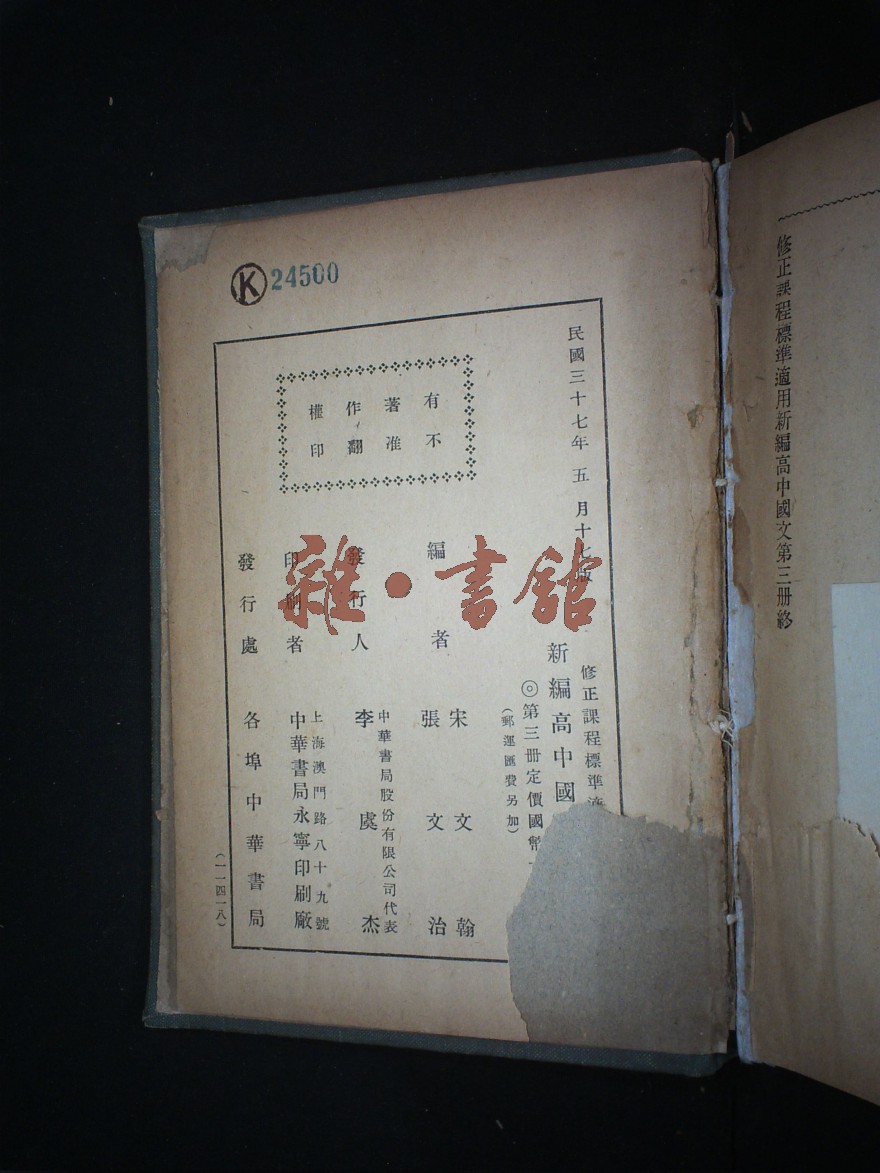 修正課程標準適用新編高中國文第三册終
K 24500
民國三十七年五月十七版
修正課程標準適
新編高中國
◎第三册定價國幣
(郵運匯費另加)
有著作權
不准翻印
編者
宋文翰
張文治
發行人
中華書局股份有限公司代表
李虞杰
印刷者
上海澳門路八十九號
中華書局永寧印刷廠
發行處
各埠中華書局
(一一四一八)
雜·書館